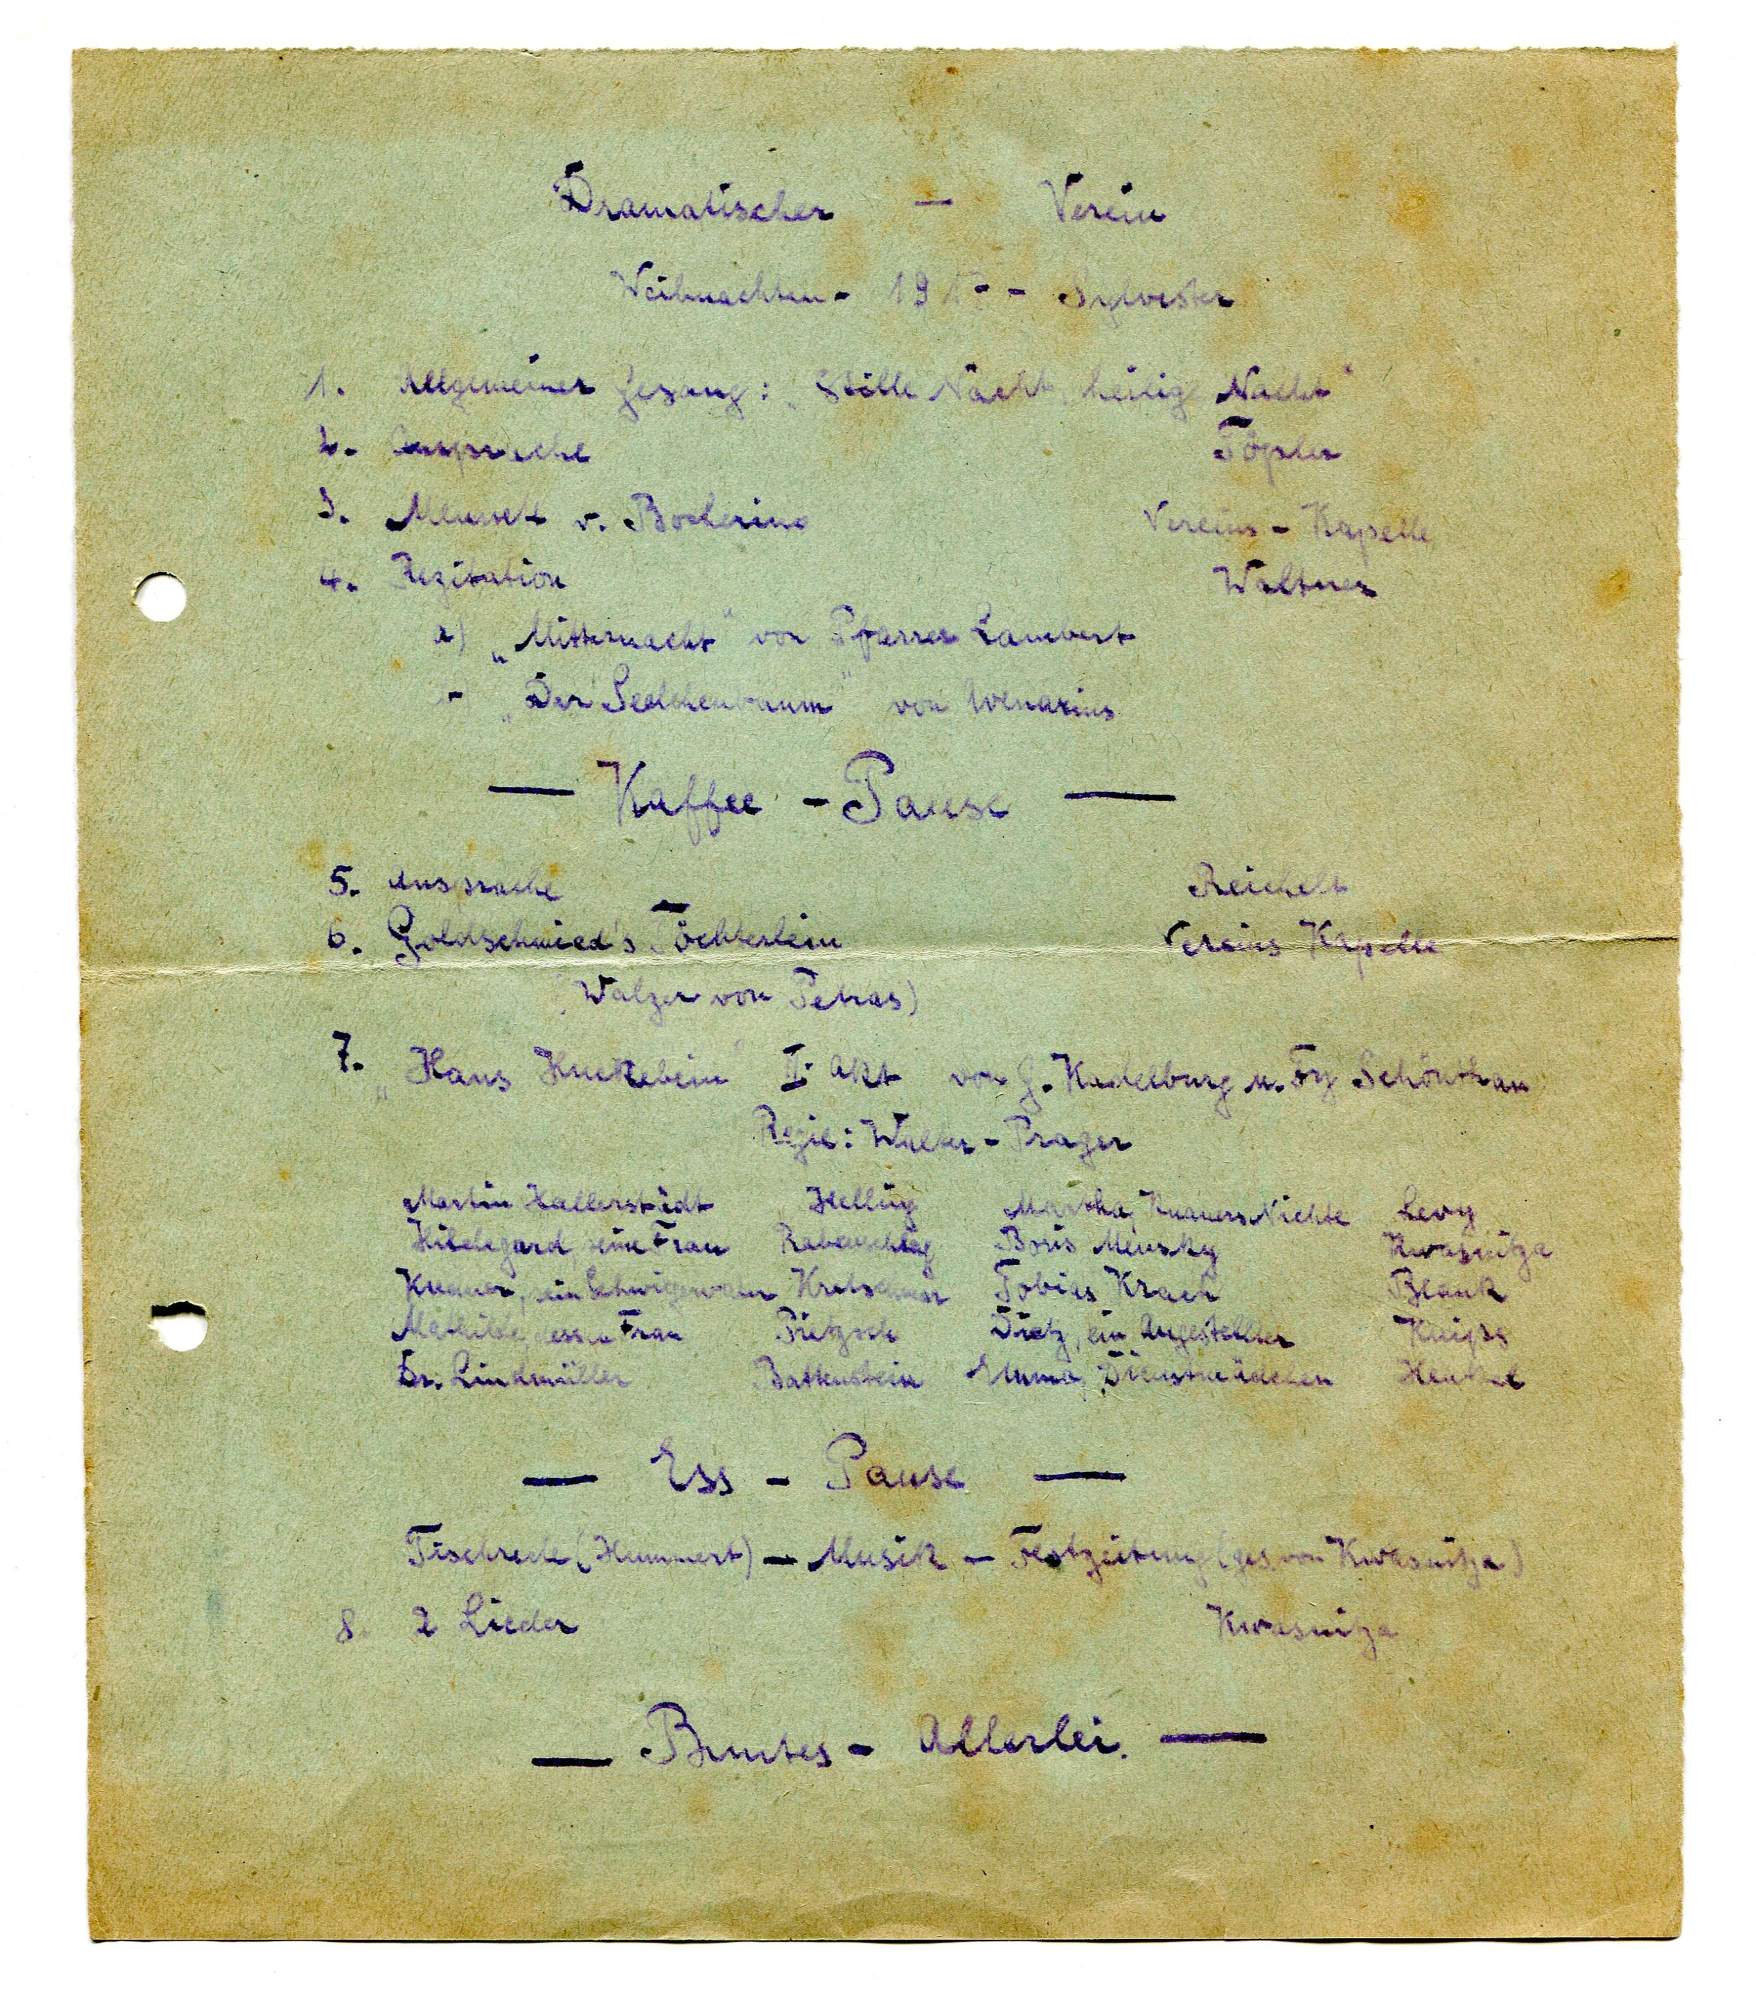 Dramatischer — Verein
Weihnachten - 191 - Sylvester
1. Allgemeiner Gesang: „Stille Nacht, heilig Nacht“
2. Ansprache Töpler
3. Menuett v. Bocherini Vereins - Kapelle
4. Rezitation Waltner
a) „Mitternacht“ von Pfarrer Lambert
„Der Seelchenbaum“ von Avenarius
— Kaffee - Pause —
5. Ansprache Reichelt
6. Goldschmied's Töchterlein Vereins Kapelle
(Walzer von Petras)
7. „Hans Huckebein“ II. Akt von G. Kadelburg u. Fz Schönthan
Regie: Walter - Prager
Martin Hallerstädt Hellwig Martha, Knauers Nichte Levy
Hildegard, seine Frau Rabenschlag Boris Mensky Kwasnitza
Knauer, ein Schwigervater Kretschmer Tobias Krack Blank
Mathilde, dessen Frau Pietzsch Dietz, ein Angestellter Knips
Dr. Lindmüller Battenstein Emma, Dienstmädchen Henkel
— Ess - Pause —
Tischrede (Hummert) — Musik — Festzeitung (ges. von Kwasnitza)
8. 2 Lieder Kwasnitza
— Buntes - Allerlei. —